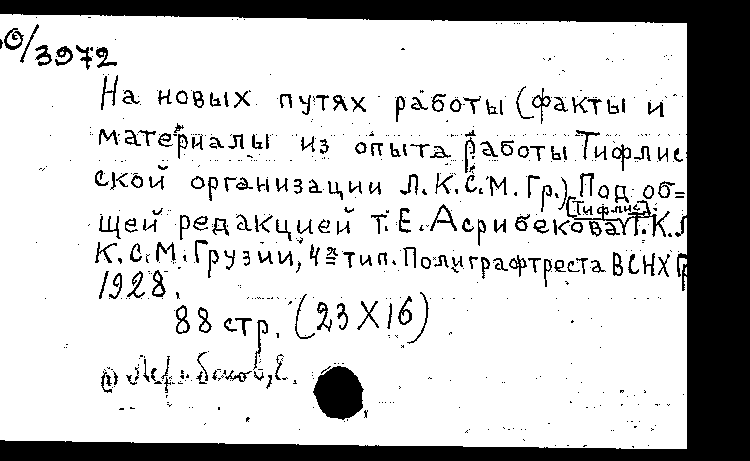 /3972
На новых путях работы (факты и
материалы из опыта работы Тифлис
ской организации Л.К.С.М. Гр.) Под об=
[Тифлис],
щей редакцией т. Е. Асрибекова Т.К.Л
К.С.М. Грузии, 4я тип. Полиграфтреста ВСНХ Гр
1928.
88 стр. (23 X 16)